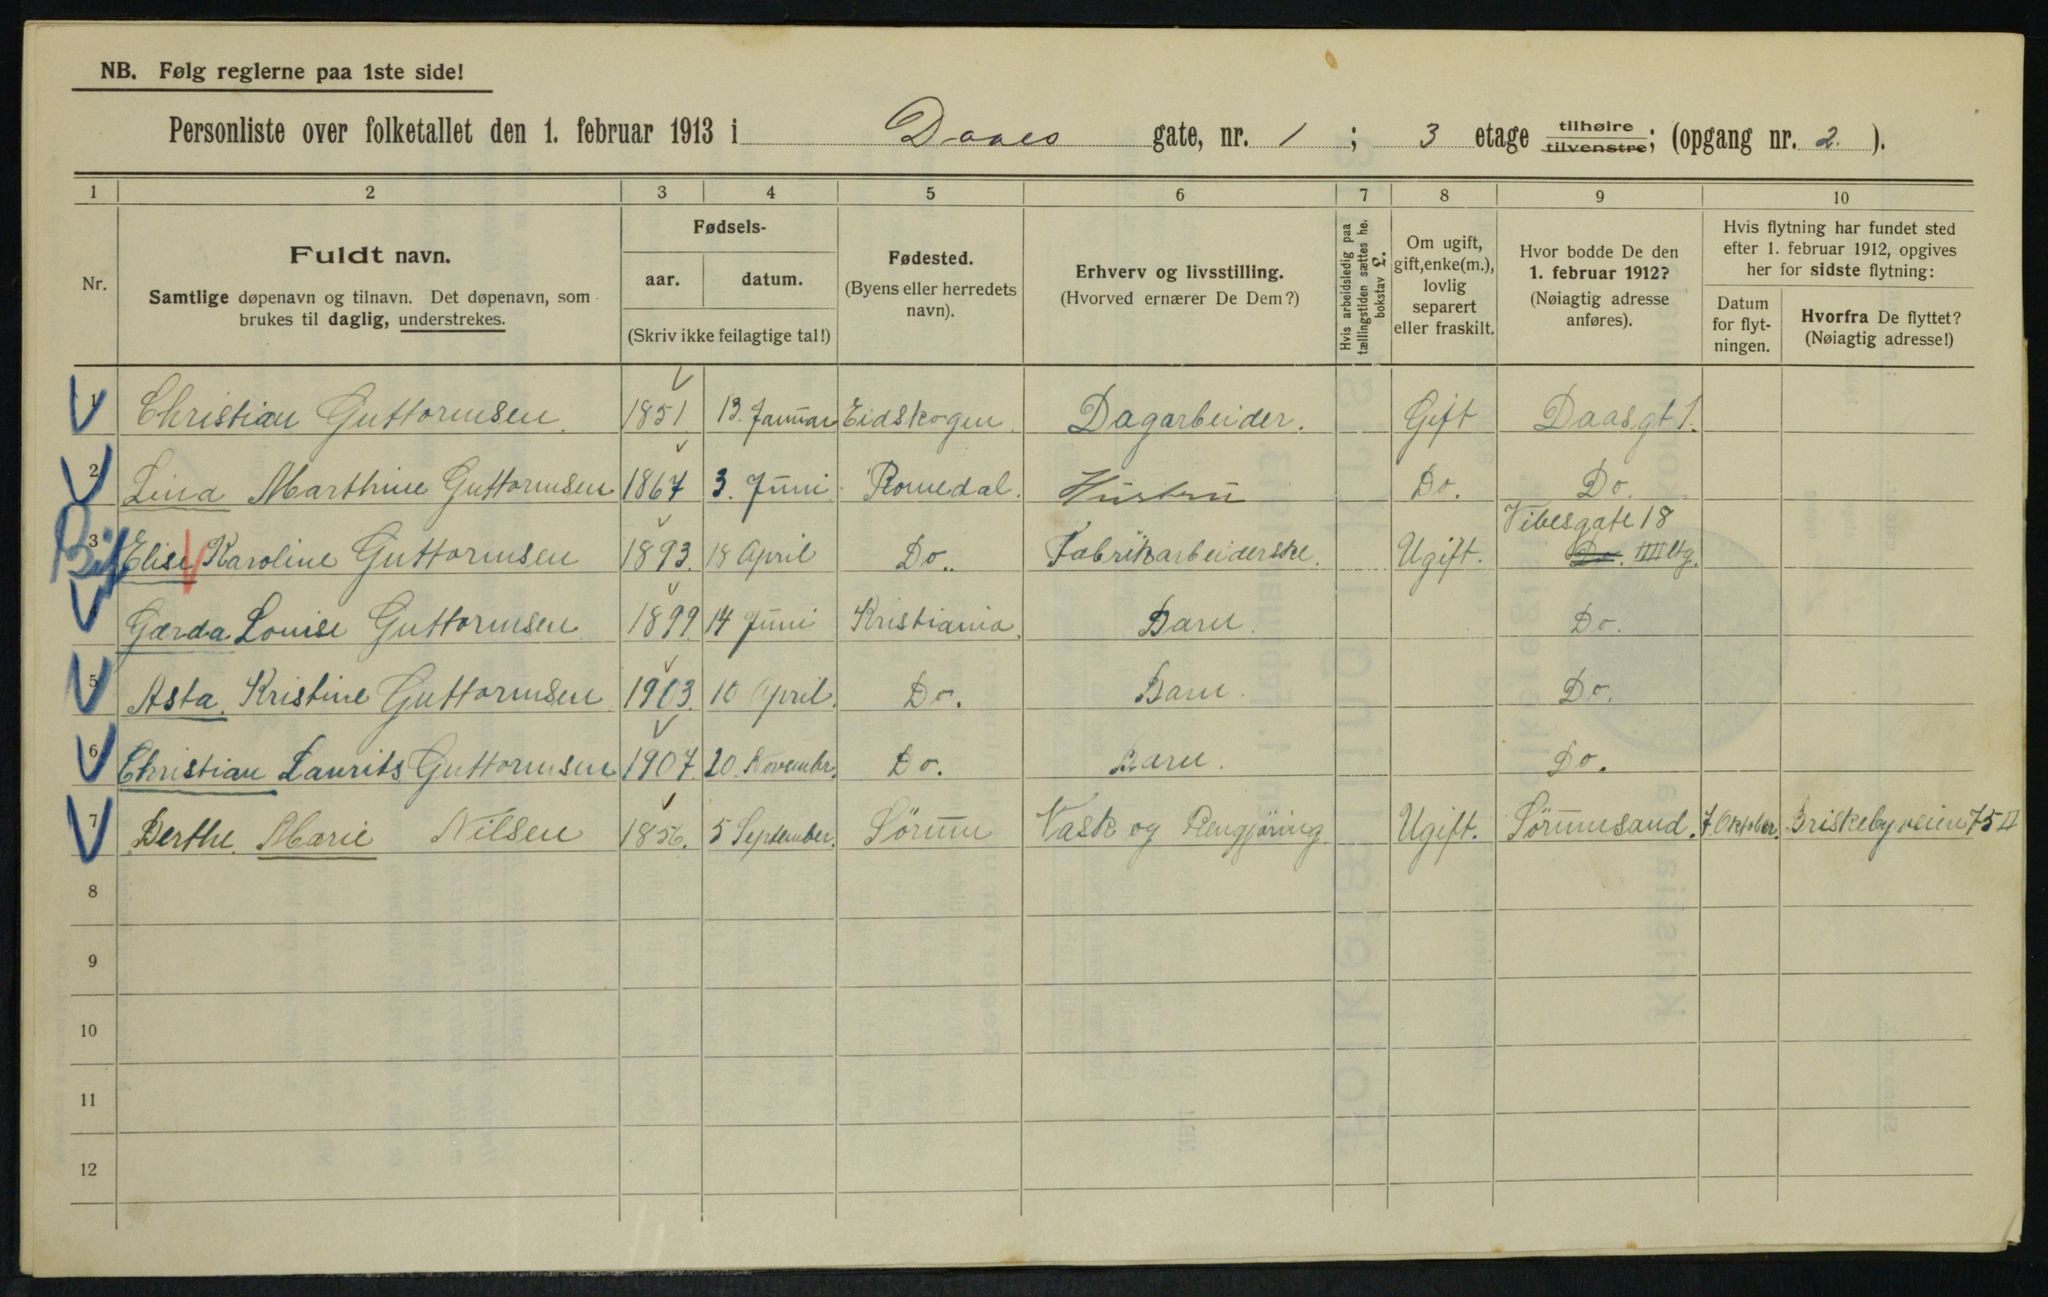 NB. Følg reglerne paa 1ste side!
Personliste over folketallet den 1. februar 1913 i Daaes gate, nr. 1 ; 3 etage tilhøire tilvenstre; (opgang nr. 2. ).
1 2 3 4 5 6 7 8 9 10
Nr.
Fuldt navn.
Samtlige døpenavn og tilnavn. Det døpenavn, som
brukes til daglig, understrekes.
Fødsels-
aar. datum.
(Skriv ikke feilagtige tal!)
Fødested.
(Byens eller herredets
navn).
Erhverv og livsstilling.
(Hvorved ernærer De Dem?)
Hvis arbeidsledig paa
tællingstiden sættes he.
bokstav L.
Om ugift,
gift, enke(m.),
lovlig
separert
eller fraskilt.
Hvor bodde De den
1. februar 1912?
(Nøiagtig adresse
anføres).
Hvis flytning har fundet sted
efter 1. februar 1912, opgives
her for sidste flytning:
Datum
for flyt-
ningen.
Hvorfra De flyttet?
(Nøiagtig adresse!)
1 Christian Guttormsen. 1851 13. Januar Eidskogen. Dagarbeider. Gift Daasgt 1.
2 Lina Marthine Guttormsen 1867 3. Juni Romedal. Hustru Do. Do.
Vibesgate 18
3 Elise Karoline Guttormsen 1893. 18 April Do.. Fabrikarbeiderske. Ugift. Do. IIII etg.
Gærda Louise Guttormsen 1899. 14 Juni Kristiania. Barn. Do.
5 Asta. Kristine Guttormsen 1903. 10 April. Do. Barn. Do.
6 Christian Laurits Guttormsen 1907. 20. Novembr. Do. Barn. Do.
7 Berthe. Marie Nilsen 1856. 5 September. Sörum Vask og Rengjöring. Ugift. Sörumsand. 7. Oktober. Briskebyveien 75 II
8
9
10
11
12